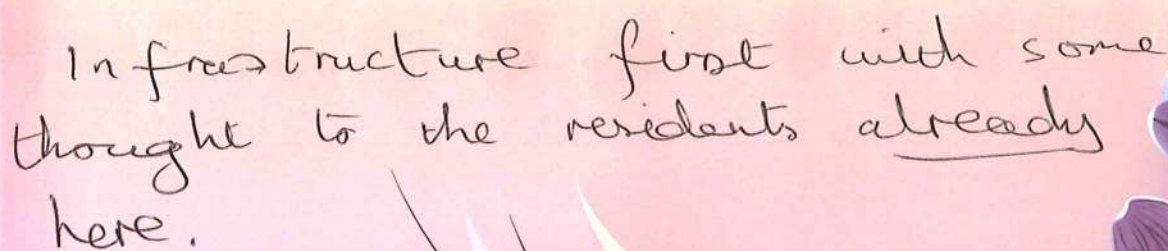 Infrastructure first with some
thought to the residents already
here.